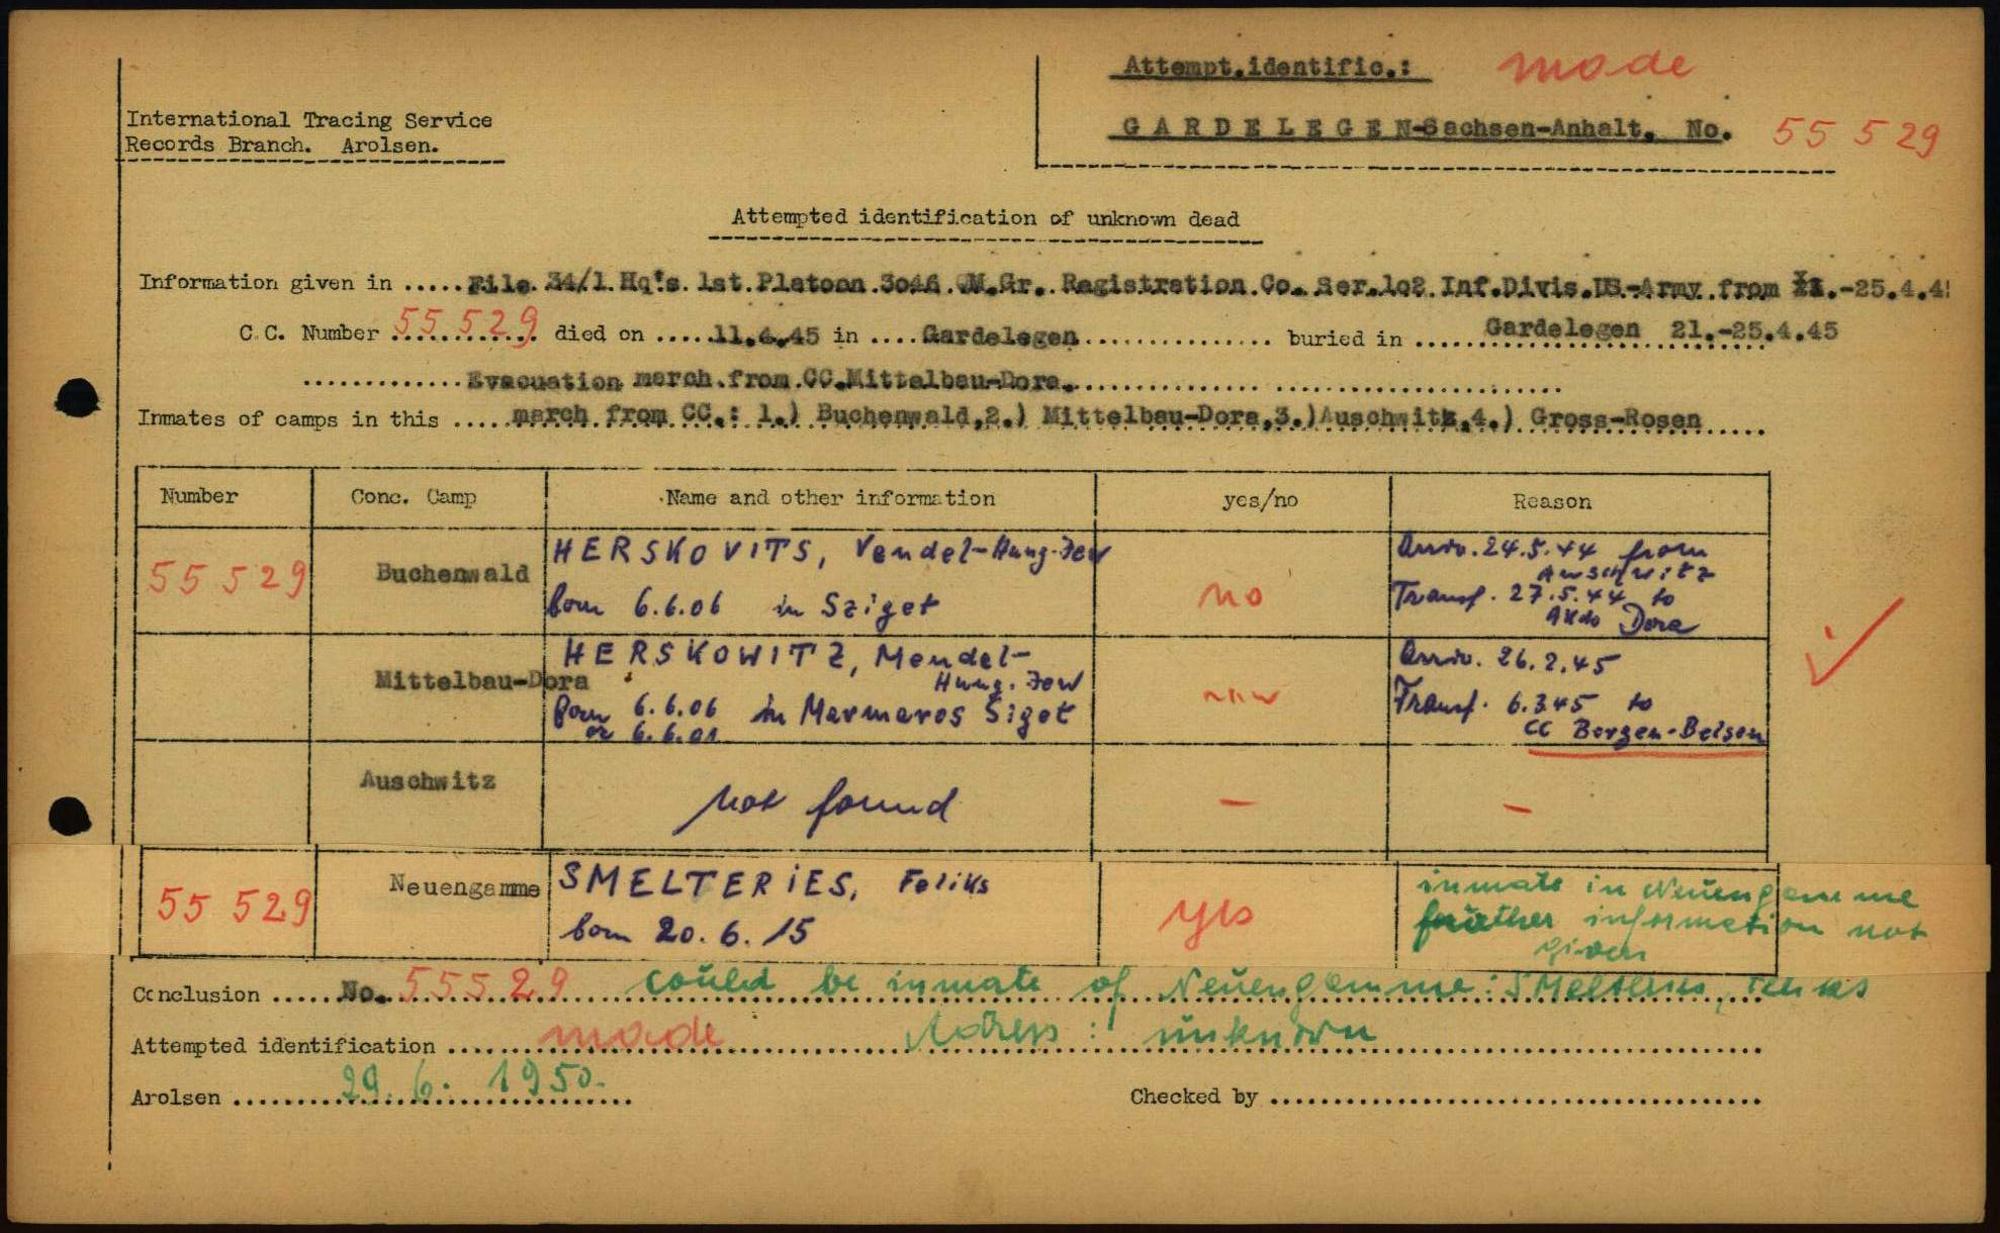 Attempt.identific.: made
International Tracing Service
Records Branch. Arolsen.
GARDELEGEN-Sachsen-Anhalt. No. 55 529
Attempted identification of unknown dead
Information given in ..... File 34/1 Hq's 1st.Platoon 3046 QM.Gr. Registration Co. Ser.102 Inf.Divis.US-Army from 21.-25.4.45
C.C. Number 55 529 died on ..... 11.4.45 in .... Gardelegen ............... buried in ..... Gardelegen 21.-25.4.45
............. Evacuation march from CC.Mittelbau-Dora.
Inmates of camps in this ..... march from CC.: 1.) Buchenwald,2.) Mittelbau-Dora,3.)Auschwitz,4.) Gross-Rosen
Number Conc. Camp Name and other information yes/no Reason
55 529 Buchenwald HERSKOVITS, Vendel-Hung.Jew no Arriv. 24.5.44 from
Auschwitz
born 6.6.06 in Sziget Transf. 27.5.44 to
Akdo Dora
Mittelbau-Dora HERSKOWITZ, Mendel- Arriv. 26.2.45
Hung. Jew
born 6.6.06 in Marmaros Siget Transf. 6.3.45 to
or 6.6.01 CC Bergen-Belsen
Auschwitz not found – –
55 529 Neuengamme SMELTERIES, Feliks yes inmate in Neuengamme
born 20.6.15 further information not
given
Conclusion ...... No. 55529 could be inmate of Neuengamme: Feliks
Attempted identification .... made Adress: unknown
Arolsen .... 29. 6. 1950.
Checked by ....................................